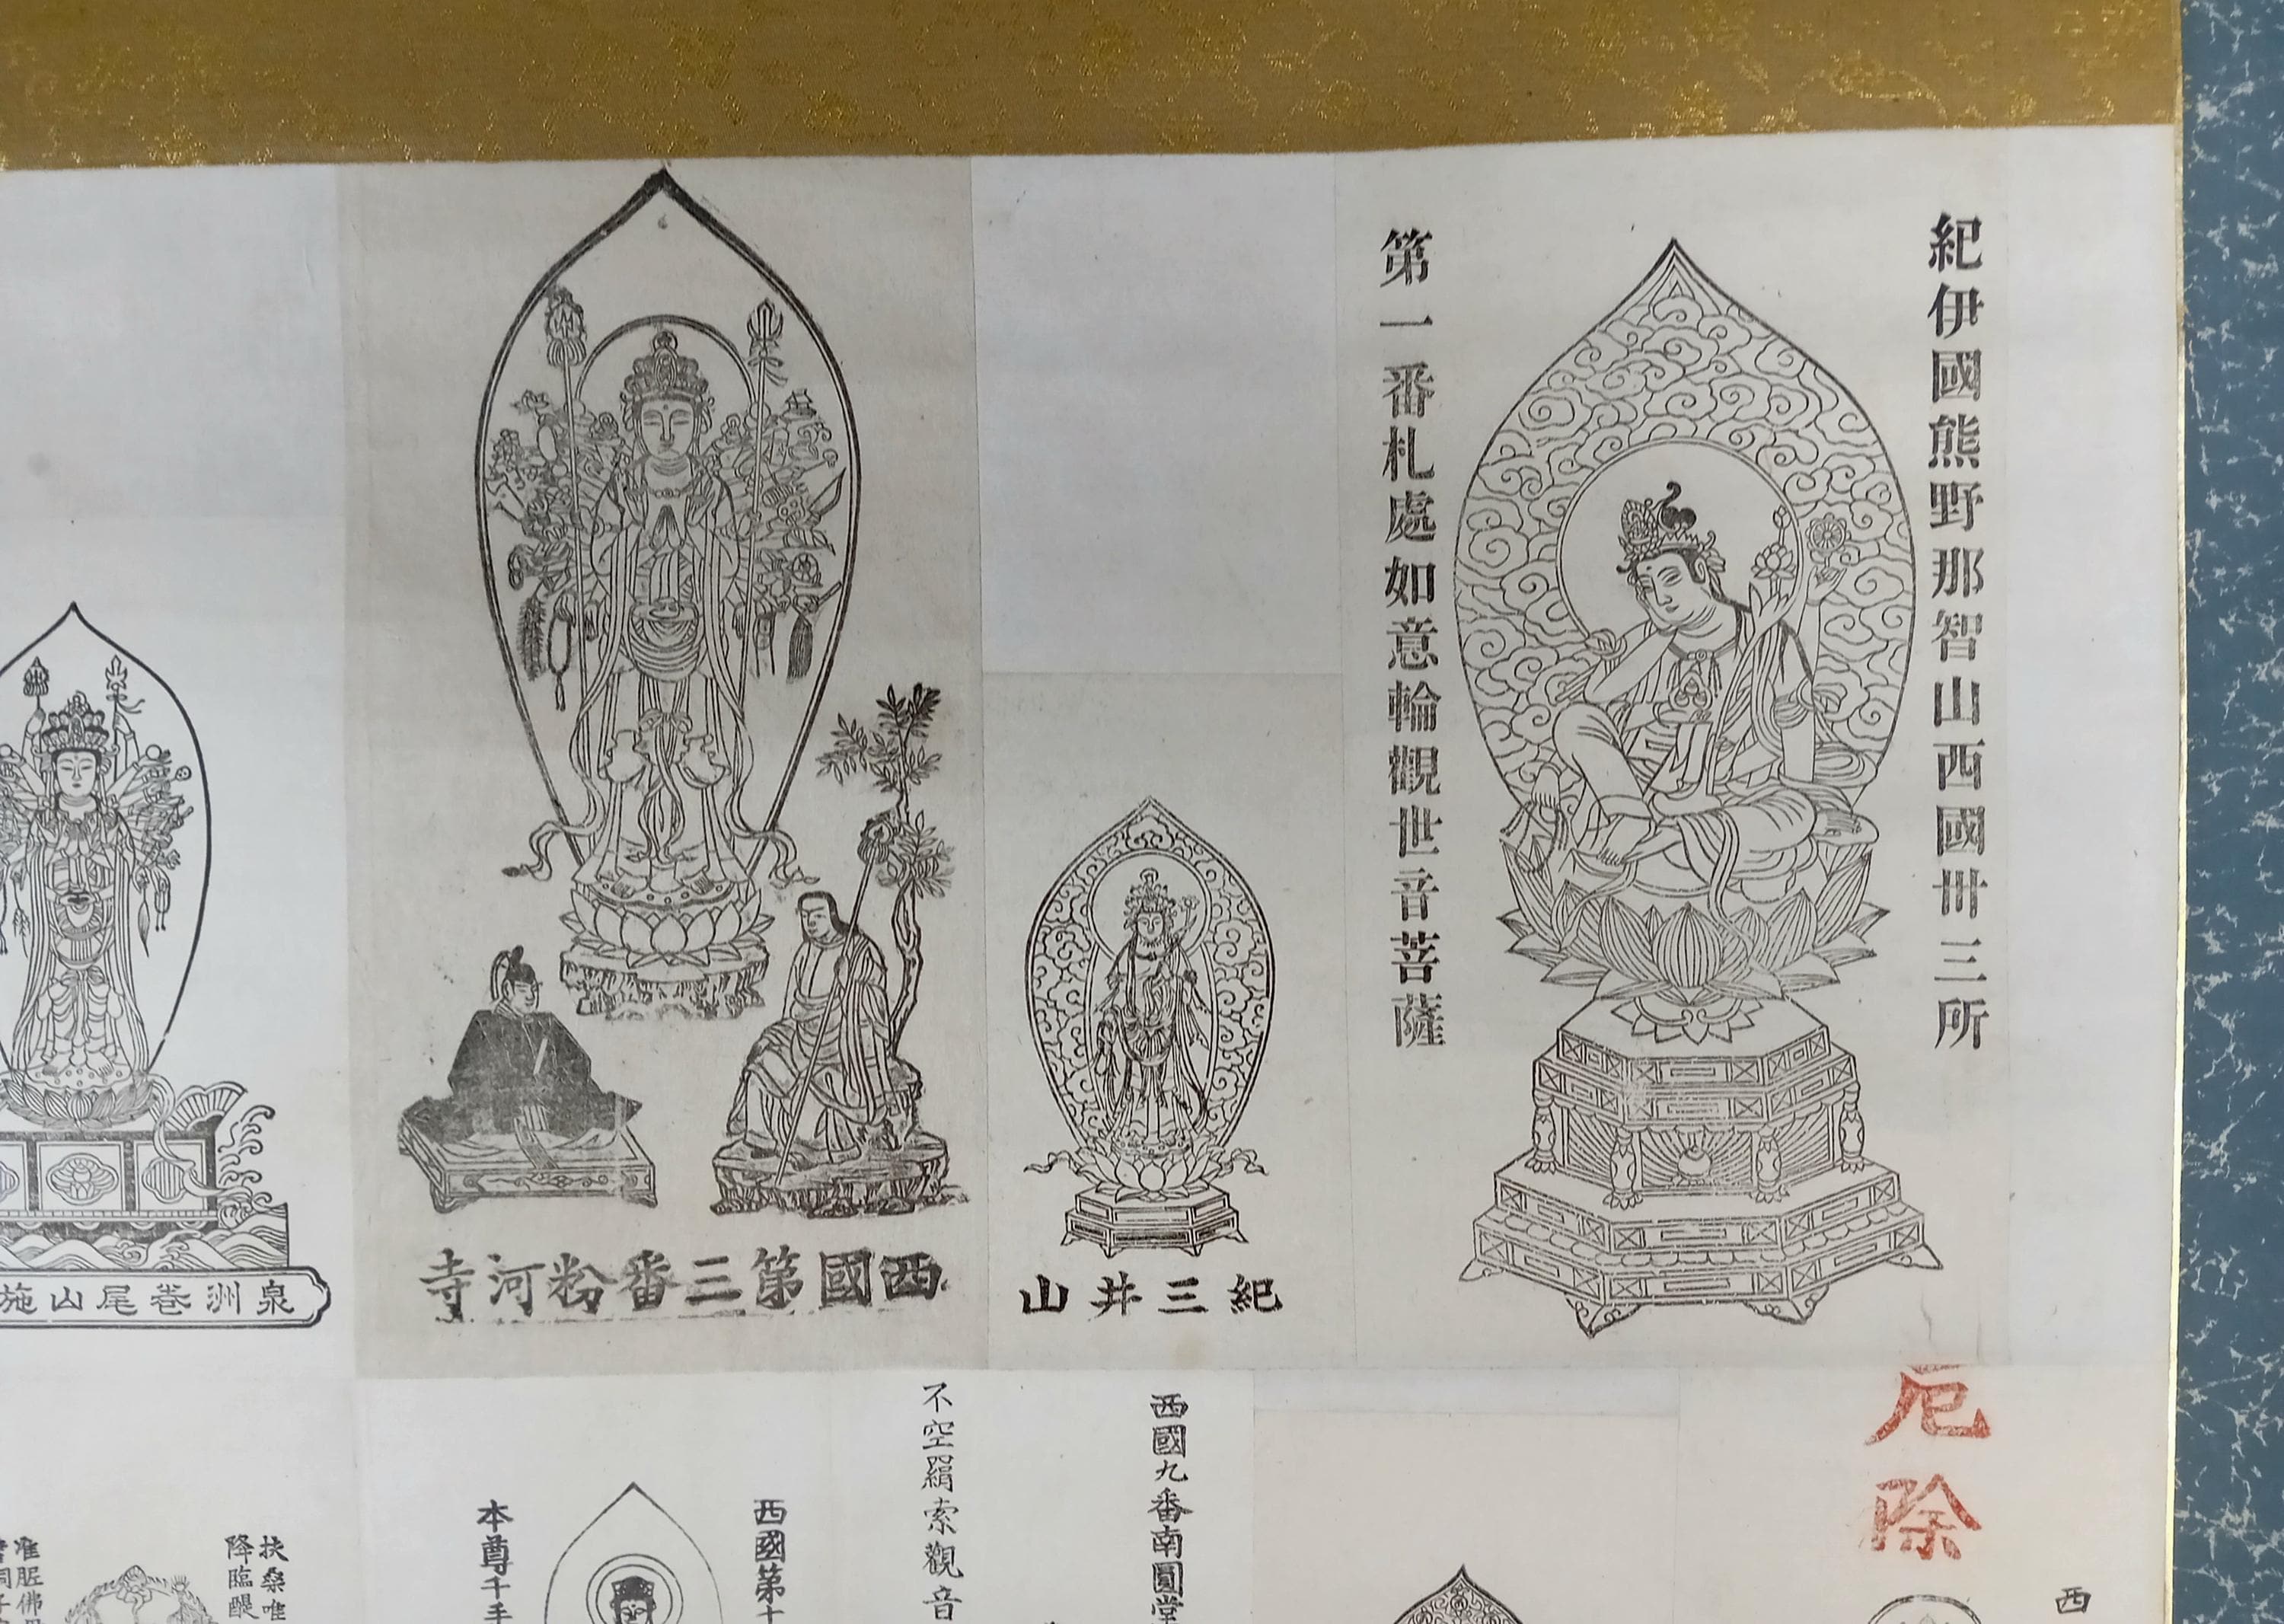 紀伊國熊野那智山西國卅三所
第一番札處如意輪觀世音菩薩
紀三井山
西國第三番粉河寺
泉洲巻尾山施
厄除
西
西國九番南圓堂
不空羂索觀音
西國第十
本尊千手
扶桑唯
降臨醍
准胝佛